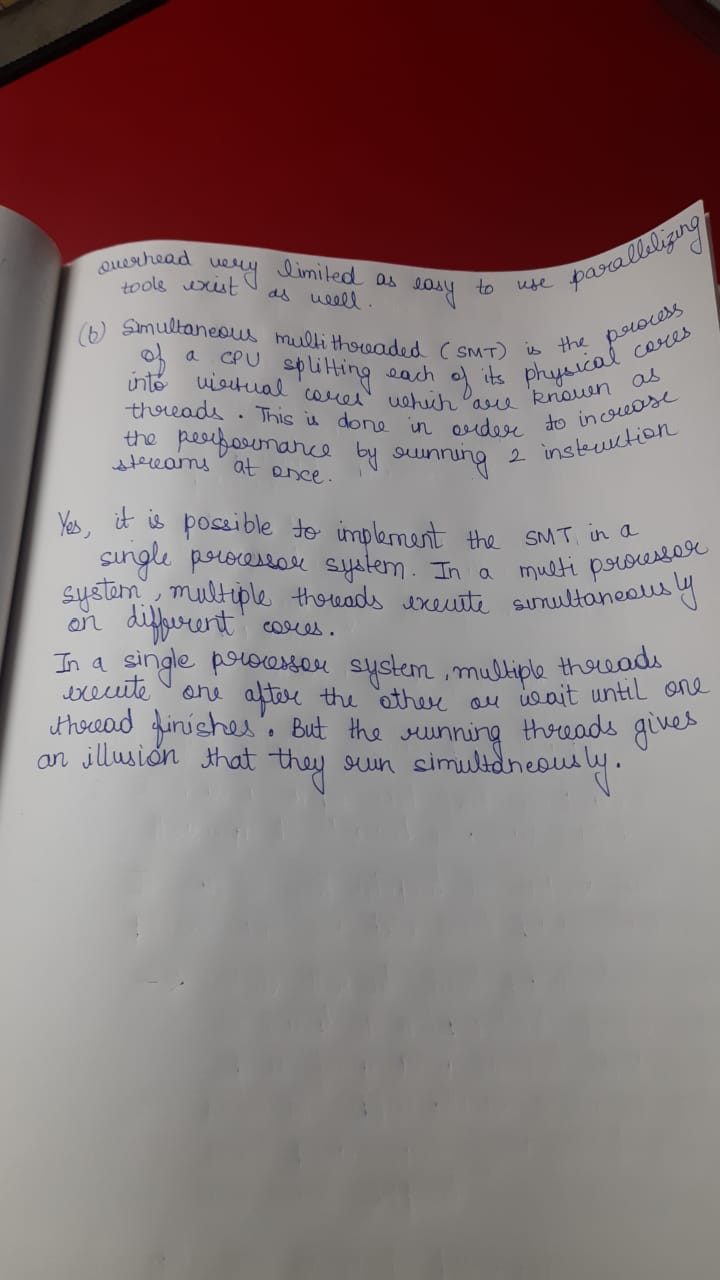 overhead very limited as easy to use parallelizing
tools exist as well.
(b) Simultaneous multithreaded (SMT) is the process
of a CPU splitting each of its physical cores
into virtual cores which are known as
threads. This is done in order to increase
the performance by running 2 instruction
streams at once.
Yes, it is possible to implement the SMT in a
single processor system. In a multi processor
system, multiple threads execute simultaneously
on different cores.
In a single processor system, multiple threads
execute one after the other or wait until one
thread finishes. But the running threads gives
an illusion that they run simultaneously.